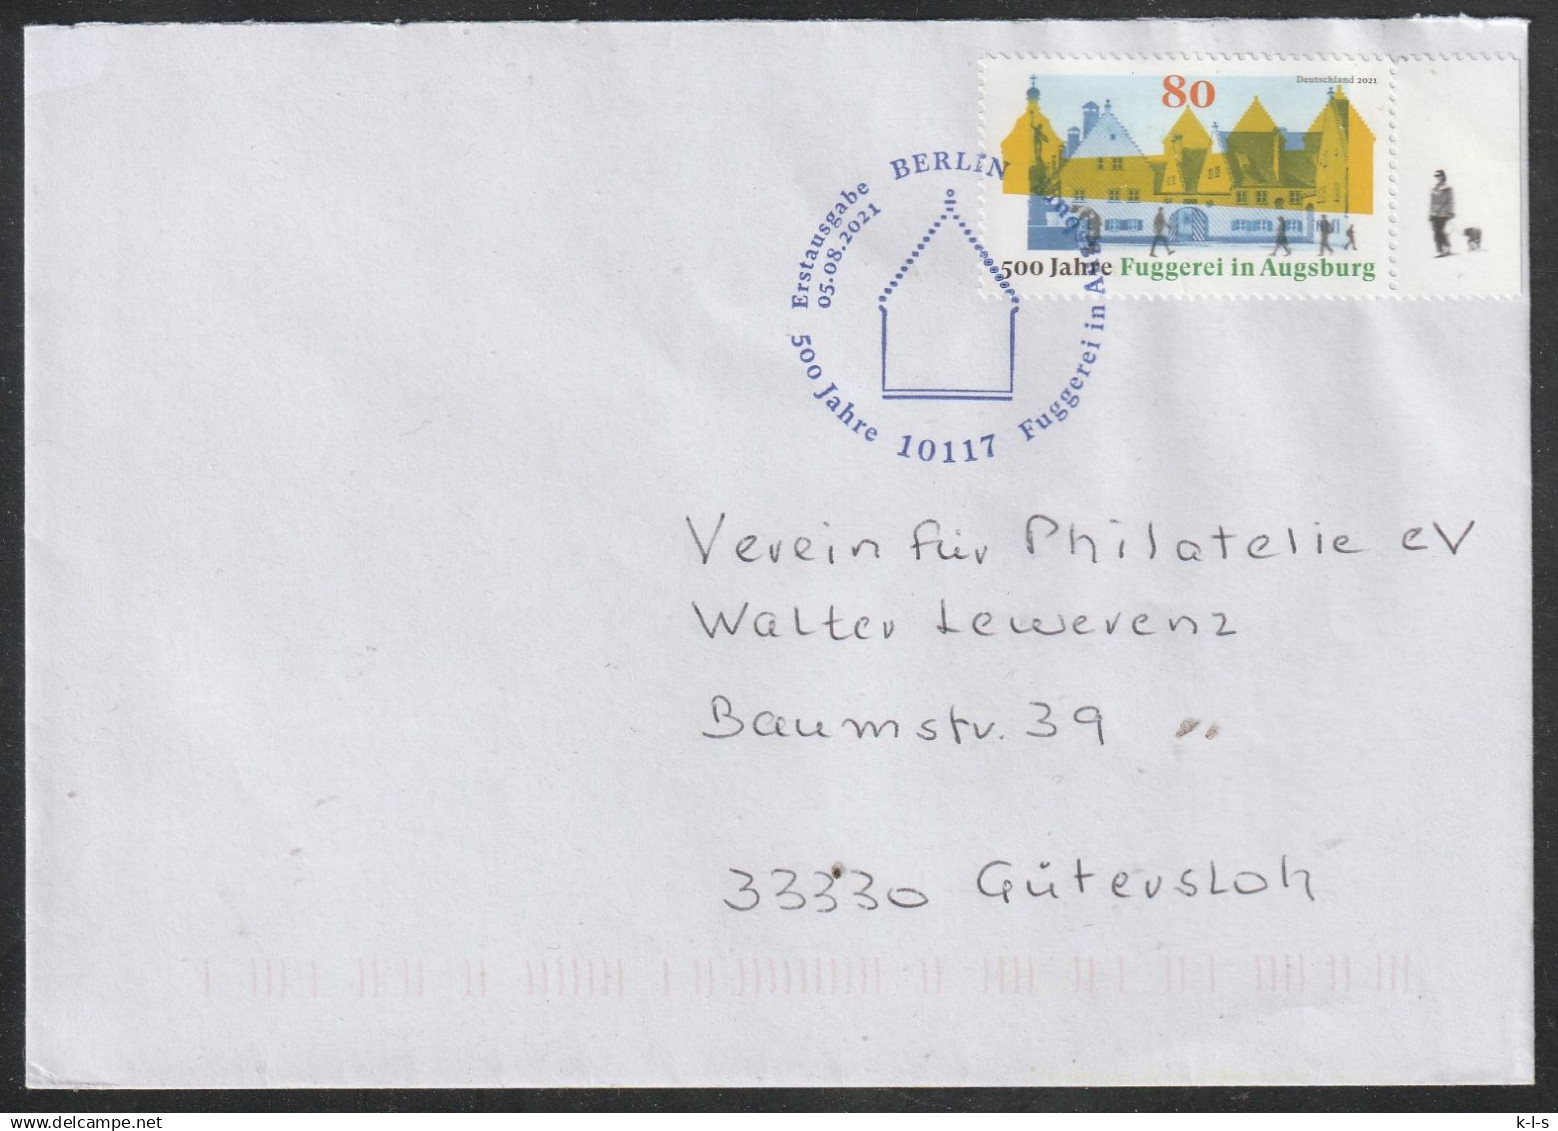 80
Deutschland 2021
500 Jahre Fuggerei in Augsburg
BERLIN
Erstausgabe
05.08.2021
500 Jahre Fuggerei in Augsburg
10117
Verein für Philatelie eV
Walter Lewerenz
Baumstr. 39
33330 Gütersloh
k-l-s